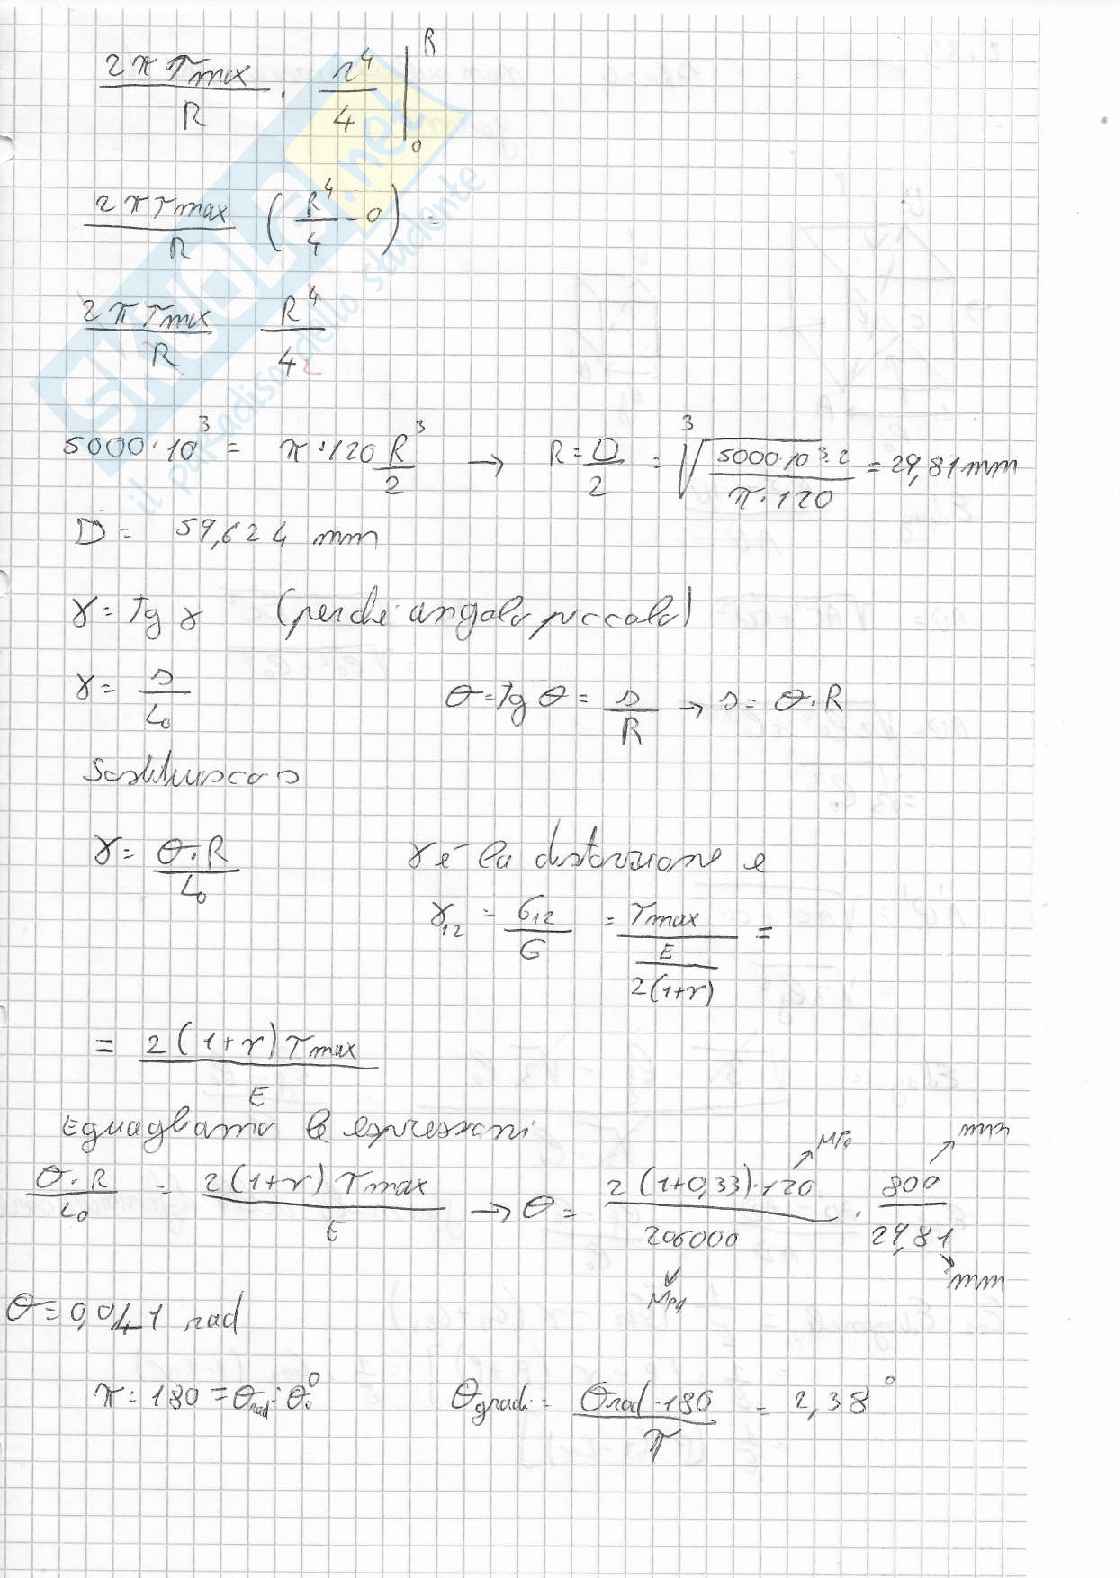 2π τmax / R · r⁴/4 |₀ᴿ
2π τmax / R (R⁴/4 - 0) =
2π τmax / R R⁴/4 2
5000·10³ = π·120 R³/2 → R = D/2 = ³√(5000·10³·2 / π·120) = 29,81 mm
D = 59,624 mm
γ = tg γ (perché angolo piccolo)
γ = s/L₀ θ = tg θ = s/R → s = θ·R
Sostituisco s
γ = θ·R/L₀ γ è la distorzione e
γ₁₂ = σ₁₂/G = τmax / (E / 2(1+ν)) =
= 2(1+ν) τmax / E
Eguagliamo le espressioni
MPa mm
θ·R/L₀ = 2(1+ν) τmax / E → θ = 2(1+0,33)·120 / 206000 · 800/29,81
MPa mm
θ = 0,041 rad
π : 180 = θrad : θ° θgradi = θrad·180 / π = 2,38°
SKUOLA.net
il paradiso dello studente